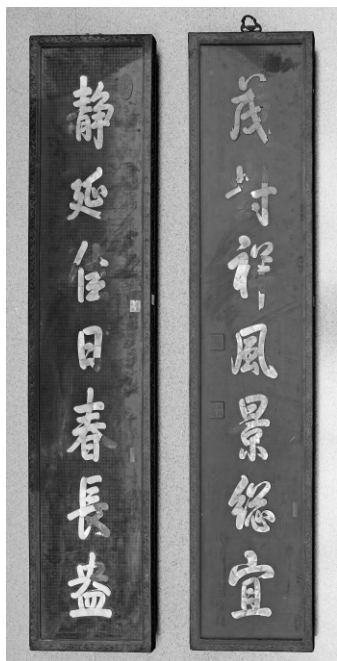 茂對祥風景總宜
静延佳日春長益